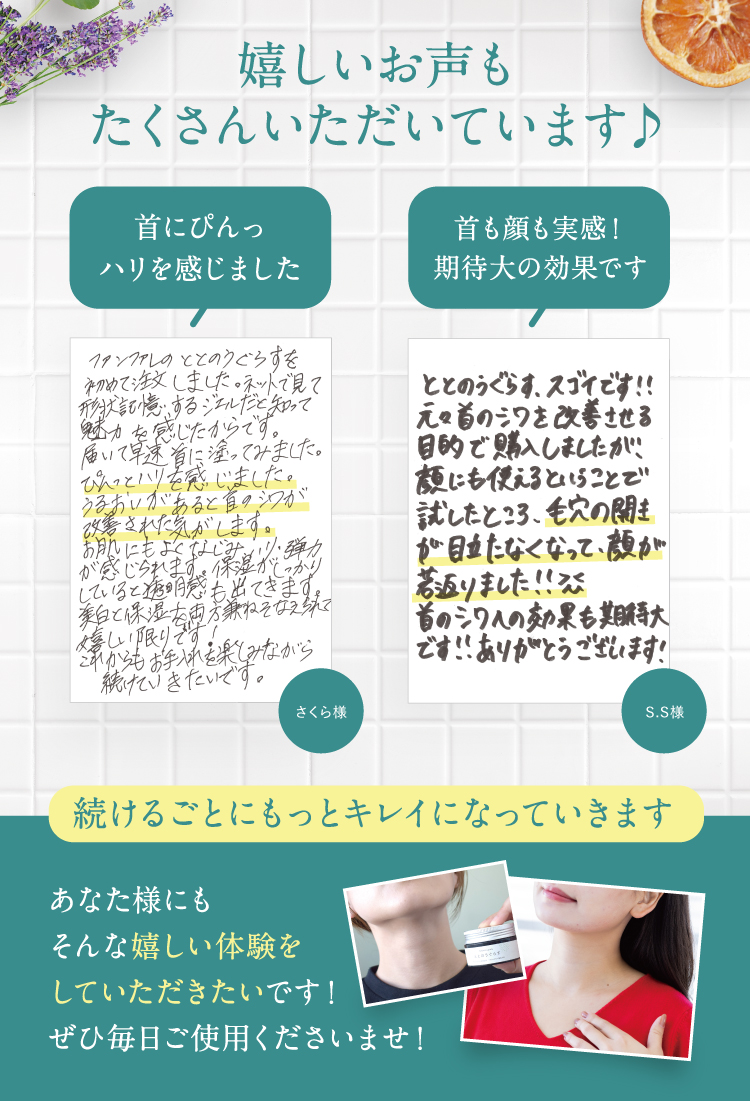 嬉しいお声も
たくさんいただいています♪
首にぴんっ
ハリを感じました
ファンファレの ととのうぐらすを
初めて注文しました。ネットで見て
形状記憶するジェルだと知って
魅力を感じたからです。
届いて早速首に塗ってみました。
ぴんっとハリを感じました。
うるおいがあると首のシワが
改善された気がします。
お肌にもよくなじみ、ハリ・弾力
が感じられます。保湿がしっかり
していると透明感も出てきます。
美白と保湿を両方兼ねそなえられて
嬉しい限りです!
これからもお手入れを楽しみながら
続けていきたいです。
さくら様
首も顔も実感!
期待大の効果です
ととのうぐらす、スゴイです!!
元々首のシワを改善させる
目的で購入しましたが、
顔にも使えるということで
試したところ、毛穴の開き
が目立たなくなって、顔が
若返りました!!
首のシワへの効果も期待大
です!!ありがとうございます!
S.S様
続けるごとにもっとキレイになっていきます
あなた様にも
そんな嬉しい体験を
していただきたいです!
ぜひ毎日ご使用くださいませ!